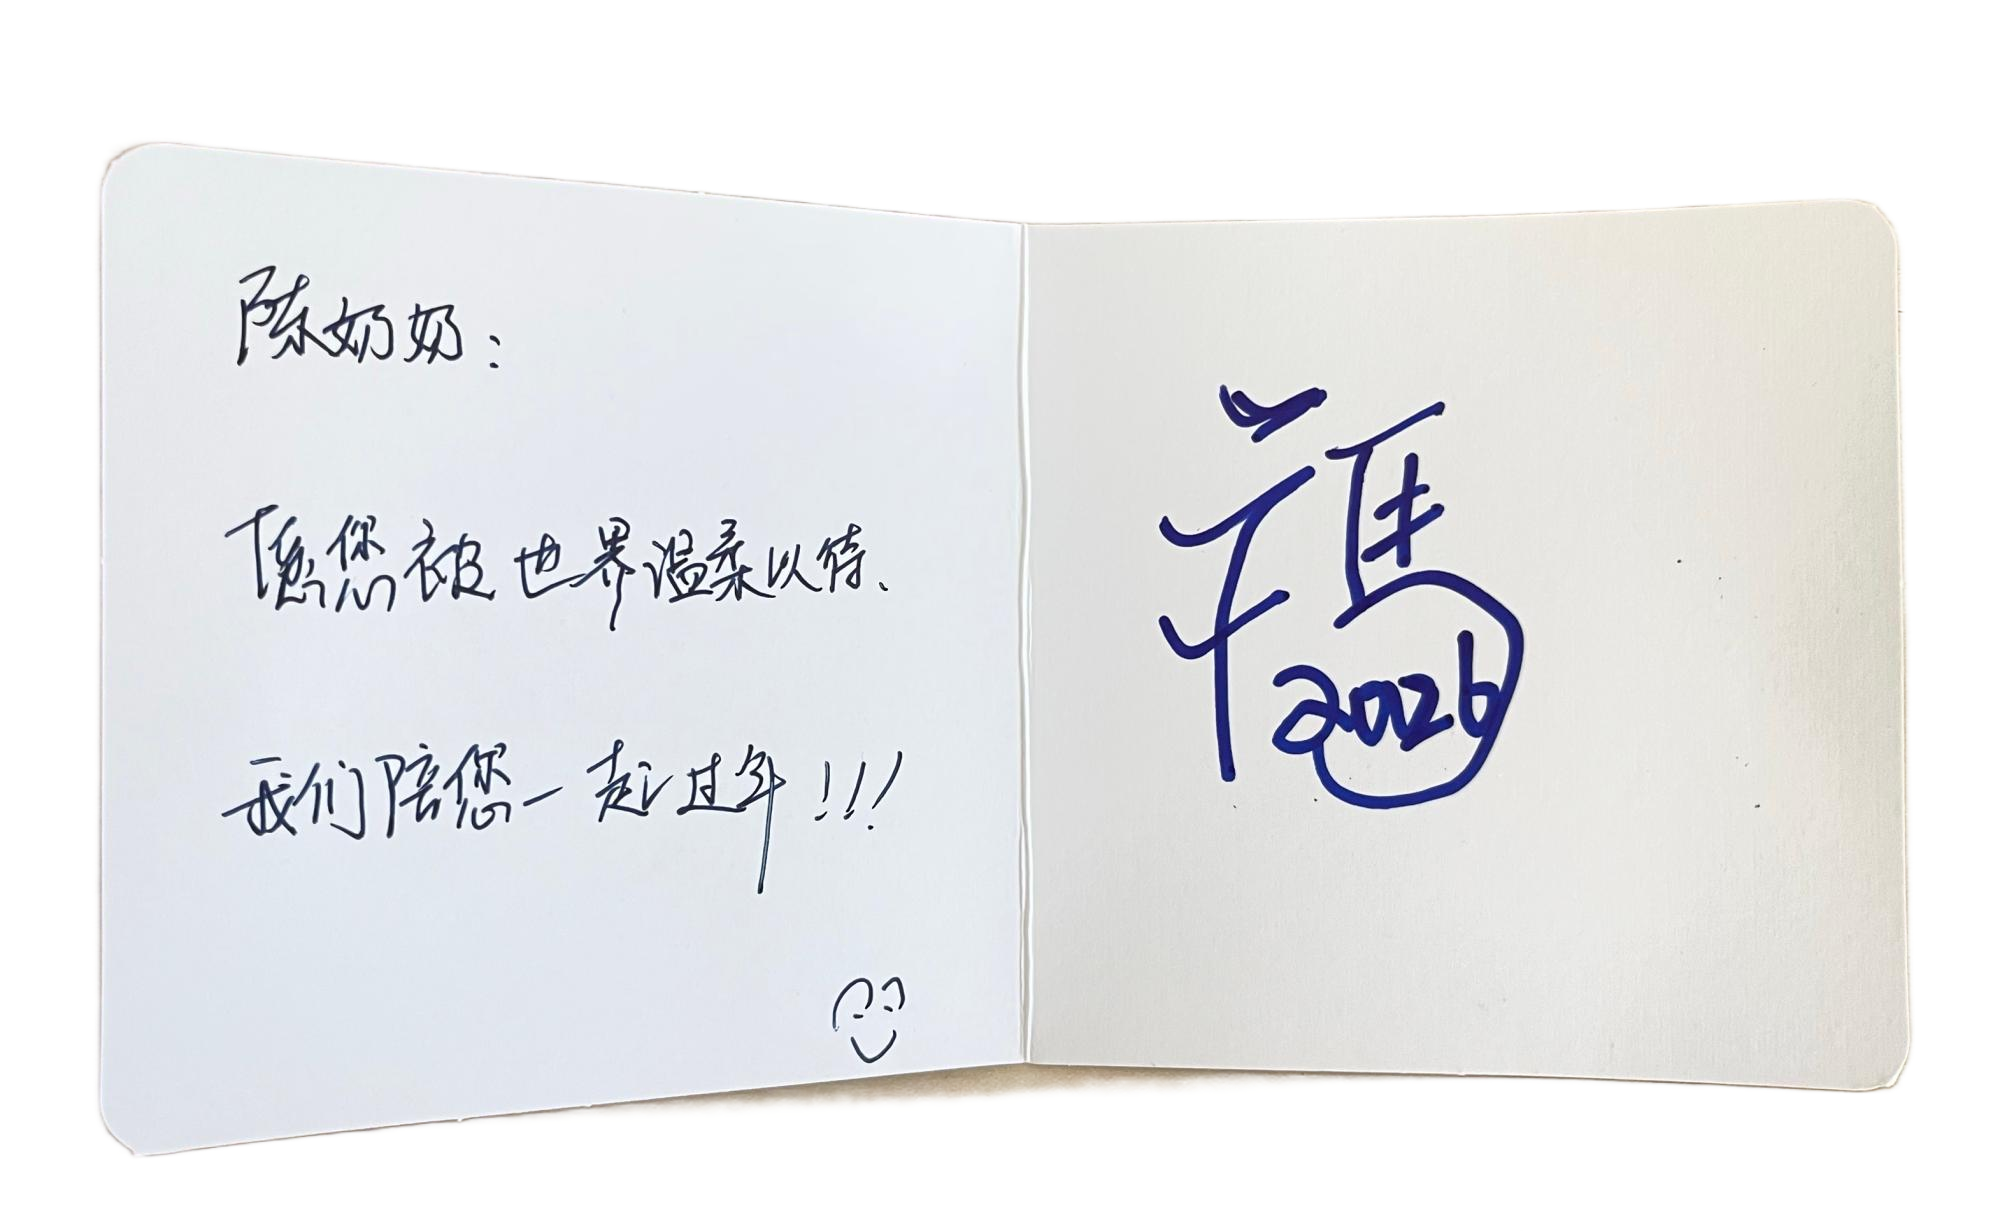 陈奶奶:
愿您被世界温柔以待.
我们陪您一起过年!!!
福
2026